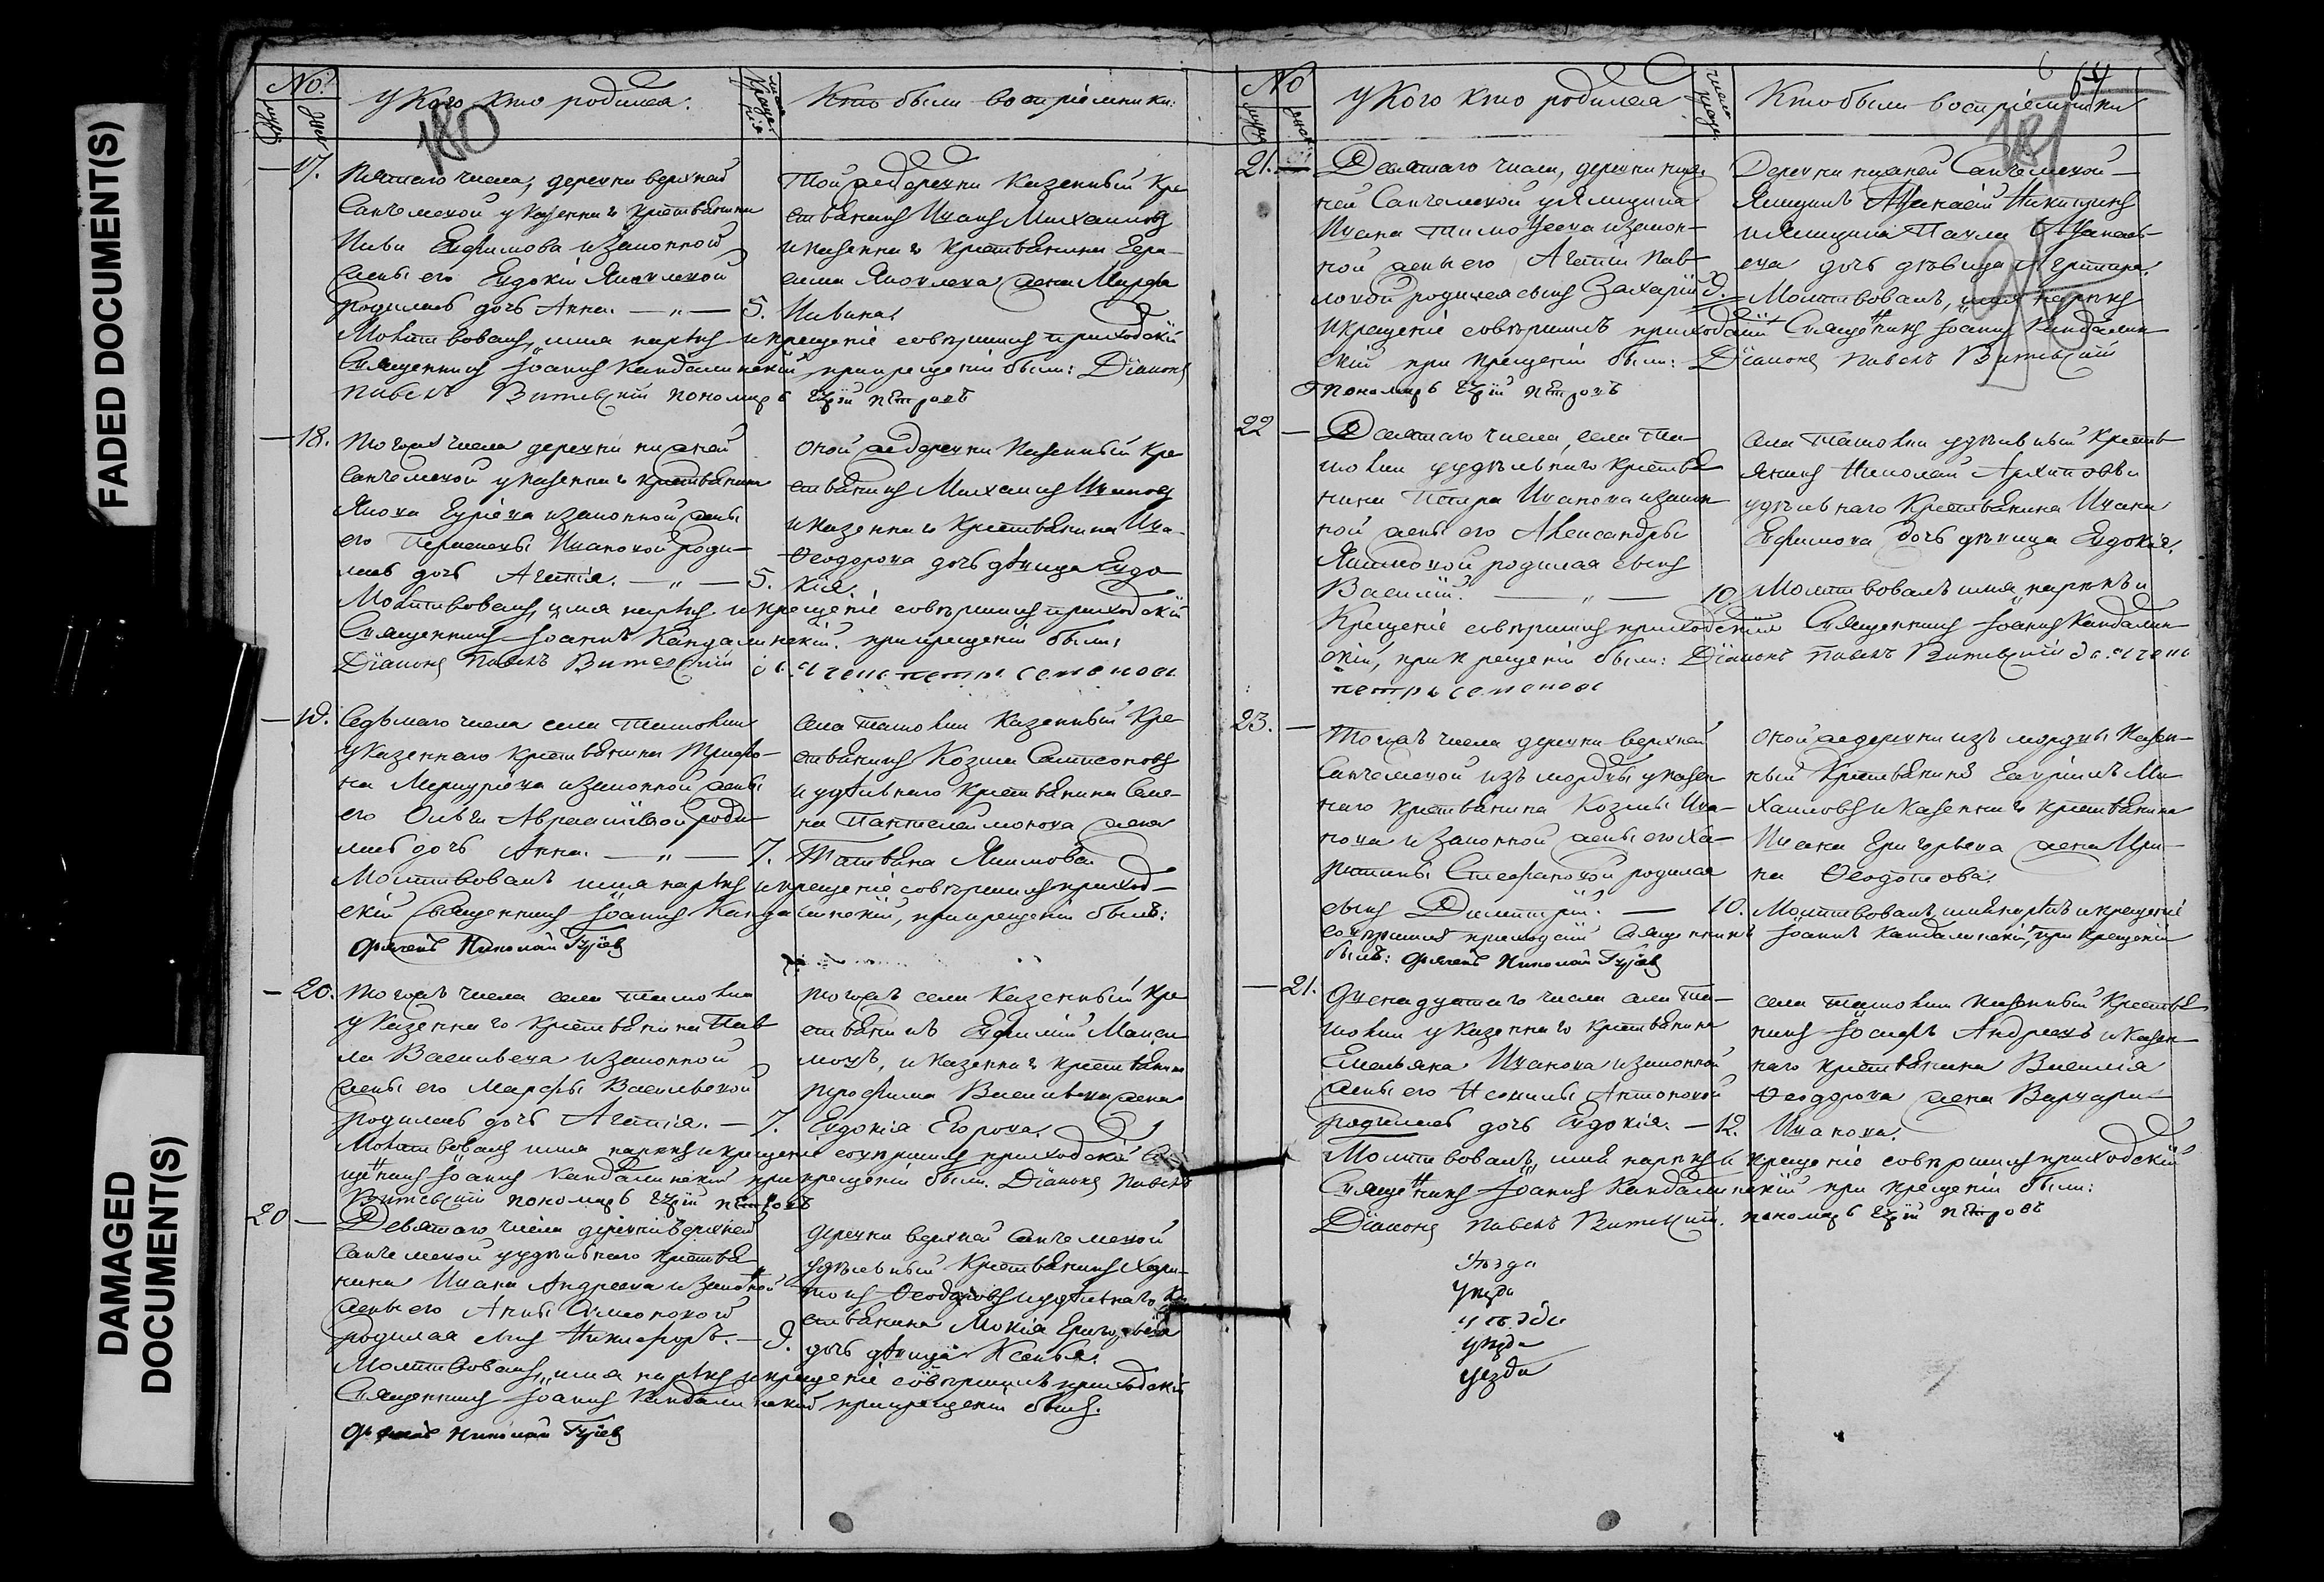 FADED DOCUMENT(S)
DAMAGED
DOCUMENT(S)
No
У кого кто родился.
Кто были восприемники:
180
17.
Пятаго числа, деревни верхней
Санчелеевой у казеннаго крестьянина
Ивана Евфимова и законной
жены его Евдокіи Яковлевой
родилась дочь Анна. — „ — 5.
Той же деревни Казенный Кре
стьянинъ Иванъ Михаиловъ
и казеннаго крестьянина Гера-
сима Яковлева жена Марфа
Молитвовалъ, имя нарекъ и крещеніе совершилъ приходскій
Священникъ Іоаннъ Кандалинскій, при крещеніи были: Діаконъ
Павелъ Витевскій пономарь Гурій Петровъ
18.
Тогожъ числа деревни нижней
Санчелеевой у казеннаго крестьянина
Якова Гурьева и законной жены
его Ивановой роди-
лась дочь Агафія. — „ — 5.
Оной же деревни Казенный Кре
стьянинъ Михаилъ Ивановъ
и казеннаго крестьянина Ива-
Ѳеодорова дочь дѣвица Евдо
кія.
Молитвовалъ, имя нарекъ и крещеніе совершилъ приходскій
Священникъ Іоаннъ Кандалинскій. при крещеніи были:
Діаконъ Павелъ Витевскій Петръ Семеновъ
19.
Седьмаго числа села Ташолки
у казеннаго крестьянина Трифо-
на Меркурьева и законной жены
его Ольги роди
лась дочь Анна. — „ — 7.
Села Ташолки Казенный Кре
стьянинъ Козма Сампсоновъ
и удѣльнаго крестьянина Семе-
на Пантелеимонова жена
Татьяна Якимова
Молитвовалъ имя нарекъ и крещеніе совершилъ приход-
скій Священникъ Іоаннъ Кандалинскій, при крещеніи былъ:
Николай Гурьев
20.
Тогожъ числа села Ташолки
у казеннаго крестьянина Пав
ла Васильева и законной
жены его Марфы Васильевой
родилась дочь Агафія. — 7.
Тогожъ села Казенный Кре
стьянинъ Евфимій Макси
мовъ, и казеннаго крестьянина
Трофима Васильева жена
Евдокія Егорова.
Молитвовалъ имя нарекъ и крещеніе совершилъ приходскій Свя
щенникъ Іоаннъ Кандалинскій при крещеніи были. Діаконъ Павелъ
Витевскій пономарь Гурій Петровъ
20
Девятаго числа деревни верхней
Санчелеевой у удѣльнаго крестья
нина Ивана Андреева и законной
жены его Анны Симоновой
родился сынъ Никифоръ. — 9.
деревни верхней Санчелеевой
удѣльный Крестьянинъ Хари-
тонъ Ѳеодоровъ и удѣльнаго кре
стьянина Мокія Григорьева
дочь дѣвица Ксенья.
Молитвовалъ, имя нарекъ и крещеніе совершилъ приходскій
Священникъ Іоаннъ Кандалинскій при крещеніи былъ.
Николай Гурьев
No
У кого кто родился
Кто были восприемники
64
181
21.
Девятаго числа, деревни ниж
ней Санчелеевой у Ямщика
Ивана Тимоѳеева и закон-
ной жены его Агафіи Пав
ловой родился сынъ Захарій 9.
Деревни нижней Санчелеевой
Ямщикъ Аѳанасій Никитинъ
и Ямщика Павла Аѳанась-
ева дочь дѣвица
Молитвовалъ, имя нарекъ
и крещеніе совершилъ приходскій Священникъ Іоаннъ Кандалин
скій при крещеніи были: Діаконъ Павелъ Витевскій
пономарь Гурій Петровъ
22
Десятаго числа, села Та-
шолки у удѣльнаго крестья
нина Петра Иванова и закон
ной жены его Александры
Якимовой родился сынъ
Василій. — „ — 10.
Села Ташолки удѣльный Кресть
янинъ Николай Архиповъ и
удѣльнаго Крестьянина Ивана
Евфимова дочь дѣвица Евдокія.
Молитвовалъ имя нарекъ и
Крещеніе совершилъ приходскій Священникъ Іоаннъ Кандалин
скій, при крещеніи были: Діаконъ Павелъ Витевскій
Петръ Семеновъ
23.
Тогожъ числа деревни верхней
Санчелеевой изъ мордвы у казен
наго крестьянина Козмы Ива-
нова и законной жены его Ха-
ритины Стефановой родился
сынъ Димитрій. — 10.
Оной же деревни изъ мордвы Казен-
ный Крестьянинъ Гавріилъ Ми
хаиловъ и казеннаго крестьянина
Ивана Григорьева жена Ири-
на Ѳеодотова.
Молитвовалъ, имя нарекъ и крещеніе
совершилъ приходскій Священникъ Іоаннъ Кандалинскій, при крещеніи
былъ: Николай Гурьев
21.
Двенадцатаго числа села Та-
шолки у казеннаго крестьянина
Емельяна Иванова и законной
жены его Антоновой
родилась дочь Евдокія. — 12.
Села Ташолки казенный Крестья
нинъ Іосифъ Андреевъ и казен
наго крестьянина Василія
Ѳеодорова жена Варвара
Иванова.
Молитвовалъ, имя нарекъ и крещеніе совершилъ приходскій
Священникъ Іоаннъ Кандалинскій при крещеніи были:
Діаконъ Павелъ Витевскій. пономарь Гурій Петровъ
уѣзда
уѣзда
уѣзда
уѣзда
уезда